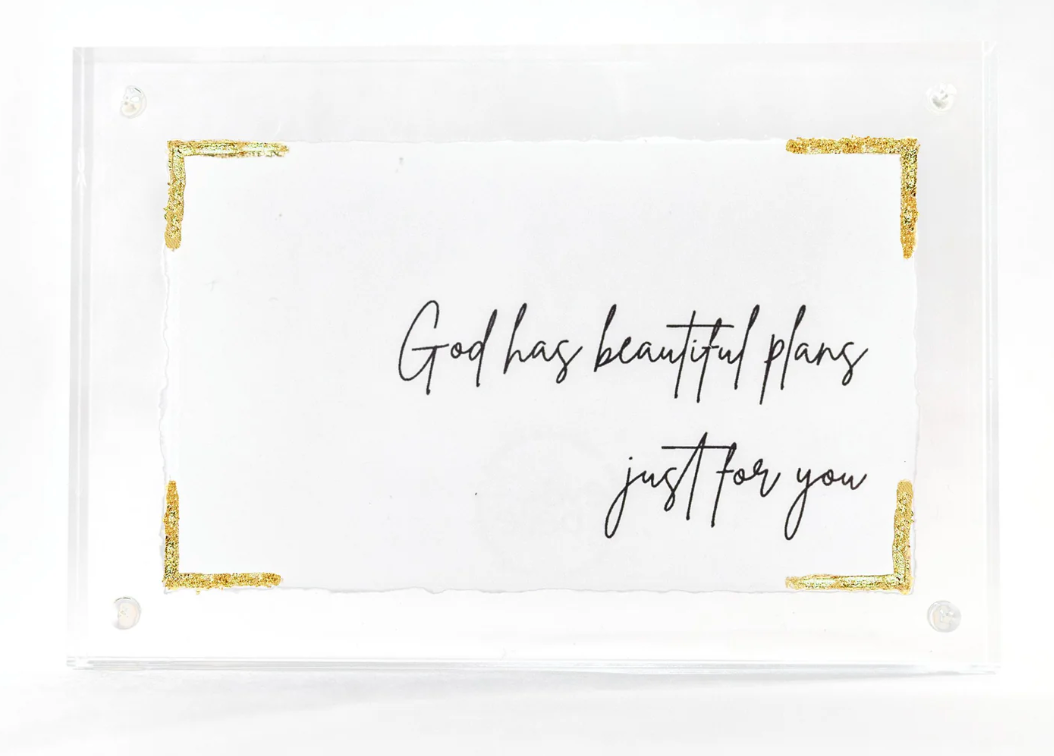 God has beautiful plans
just for you